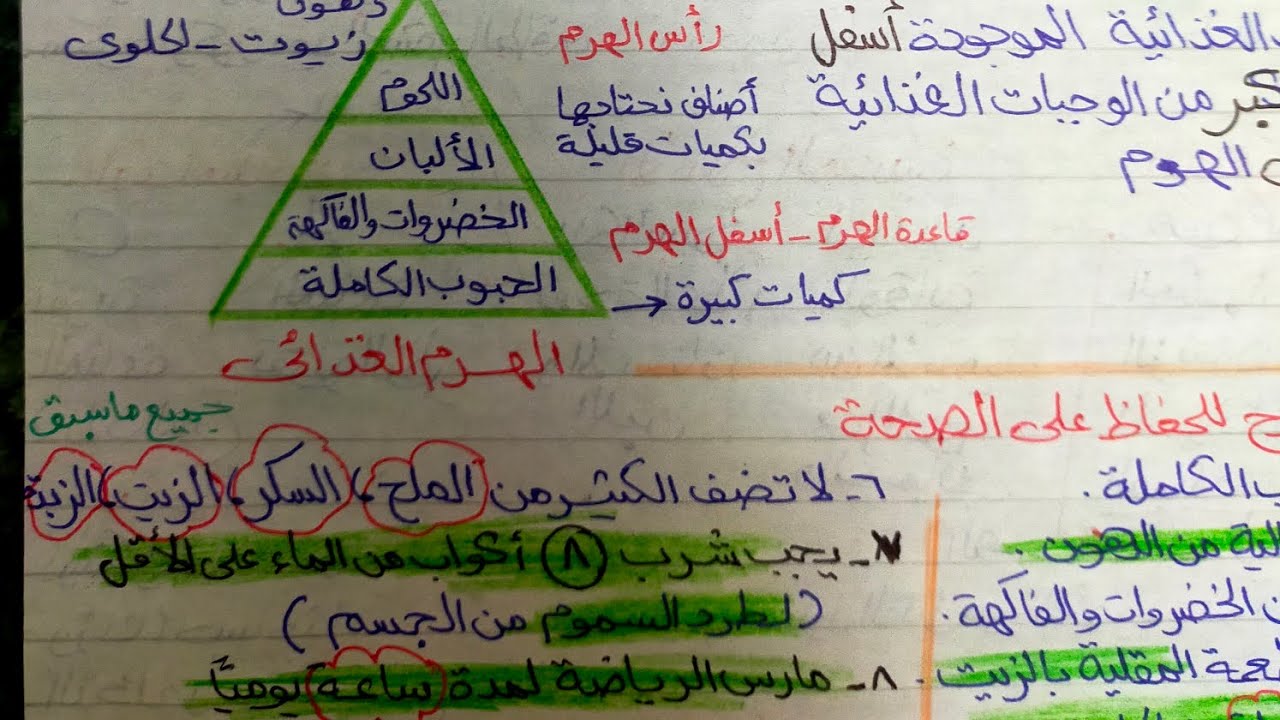 والغذائية الموجودة أسفل
من الوجبات الغذائية
الهرم
رأس الهرم
أصناف نحتاجها
بكميات قليلة
قاعدة الهرم - أسفل الهرم
كميات كبيرة
دهون
زيوت - حلوى
اللحوم
الألبان
الخضروات والفاكهة
الحبوب الكاملة
الهرم الغذائى
للحفاظ على الصحة
الكاملة.
من الدهون.
الخضروات والفاكهة.
المقلية بالزيت.
جميع ماسبق
٦- لا تضف الكثير من الملح، السكر، الزيت، الزبدة
٧- يجب شرب ٨ أكواب من الماء على الأقل
(لطرد السموم من الجسم)
٨- مارس الرياضة لمدة ساعة يومياً